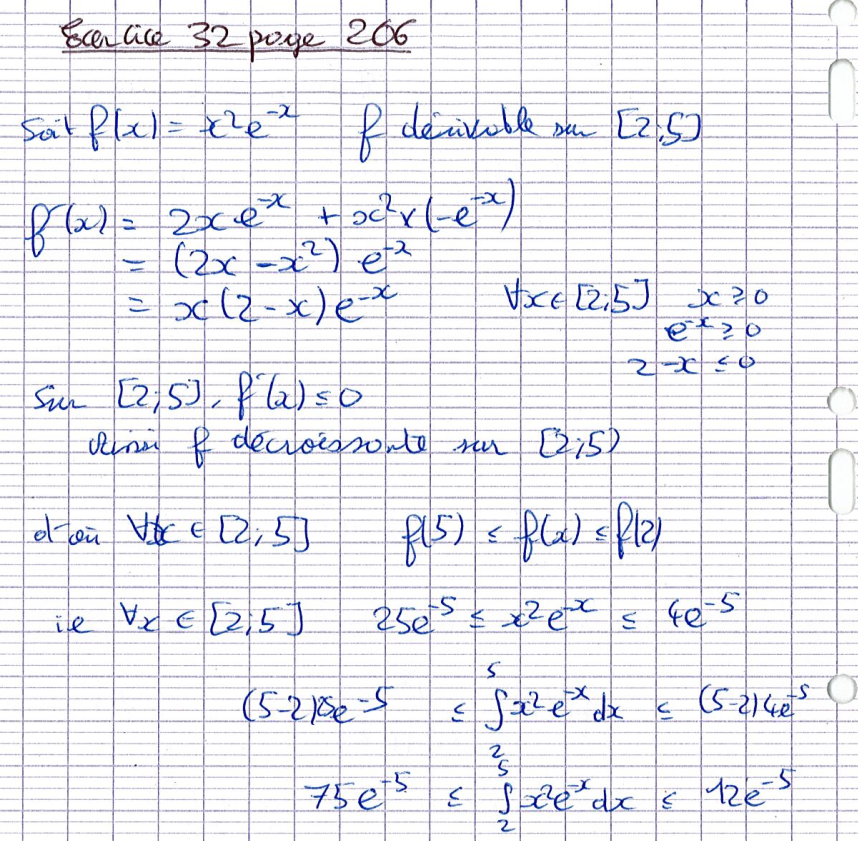 Exercice 32 page 206
Soit f(x) = x²e^-x f dérivable sur [2;5]
f'(x) = 2x e^-x + x² × (-e^-x)
= (2x - x²) e^-x
= x(2-x)e^-x ∀x ∈ [2;5] x ≥ 0
e^-x ≥ 0
2-x ≤ 0
Sur [2;5], f'(x) ≤ 0
Ainsi f décroissante sur [2;5]
d'où ∀x ∈ [2;5] f(5) ≤ f(x) ≤ f(2)
i.e ∀x ∈ [2;5] 25e^-5 ≤ x²e^-x ≤ 4e^-5
(5-2)25e^-5 ≤ ∫₂⁵ x²e^-x dx ≤ (5-2)4e^-5
75e^-5 ≤ ∫₂⁵ x²e^-x dx ≤ 12e^-5